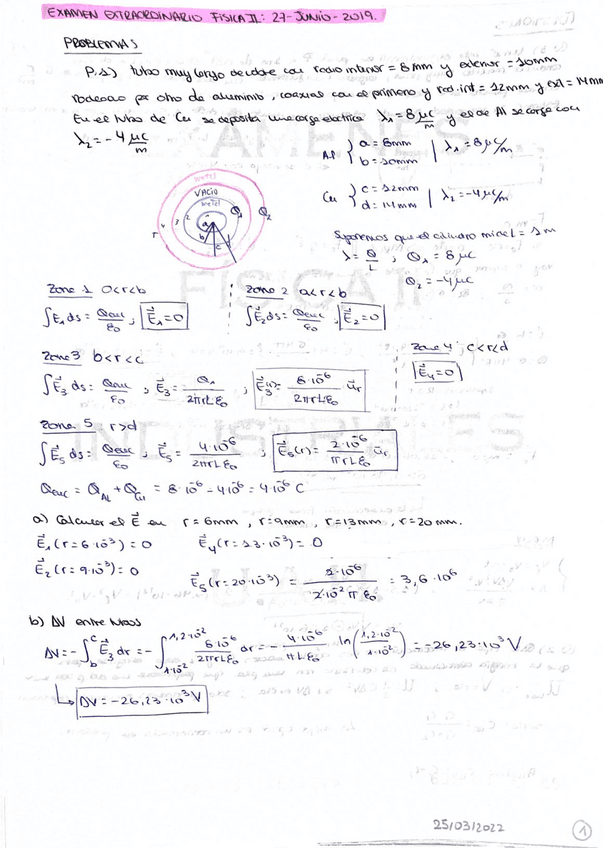 EXAMEN EXTRAORDINARIO FISICA II: 27-JUNIO-2019.
PROBLEMAS
P.1) Tubo muy largo de cobre con radio interior = 8mm y exterior = 10mm
rodeado por otro de aluminio, coaxial con el primero y rad. int = 12mm y ext = 14mm
En el tubo de Cu se deposita una carga electrica λ₁ = 8 μC/m y el de Al se carga con
λ₂ = -4 μC/m
Al { a = 8mm b = 10mm | λ₁ = 8 μC/m
Cu { c = 12mm d = 14mm | λ₂ = -4 μC/m
metal
VACIO
metel
1 2 3 4 5
a b c
Q₁ Q₂
Suponemos que el cilindro mide L = 1m
λ = Q/L ; Q₁ = 8 μC
Q₂ = -4 μC
Zona 1 0<r<b
∫E⃗₁ds = Qenc/ε₀ ; E⃗₁=0
Zona 2 a<r<b
∫E⃗₂ds = Qenc/ε₀ ; E⃗₂=0
Zona 3 b<r<c
∫E⃗₃ds = Qenc/ε₀ ; E⃗₃ = Q₁/2πrLε₀ ; E⃗₃(r) = 8·10⁻⁶/2πrLε₀ u⃗r
Zona 4 ; c<r<d
E⃗₄=0
Zona 5 : r>d
∫E⃗₅ds = Qenc/ε₀ ; E⃗₅ = 4·10⁻⁶/2πrLε₀ ; E⃗₅(r) = 2·10⁻⁶/πrLε₀ u⃗r
Qenc = QAl + QCu = 8·10⁻⁶ - 4·10⁻⁶ = 4·10⁻⁶ C
a) Calcular el E⃗ en r = 6mm, r = 9mm, r = 13mm, r = 20mm.
E⃗₁(r = 6·10⁻³) = 0 E⃗₄(r = 13·10⁻³) = 0
E⃗₂(r = 9·10⁻³) = 0 E⃗₅(r = 20·10⁻³) = 2·10⁻⁶/2·10⁻² π ε₀ = 3,6·10⁶
b) ΔV entre tubos
ΔV = -∫bᶜ E⃗₃ dr = -∫ 1·10⁻² 1,2·10⁻² 8·10⁻⁶/2πrLε₀ dr = - 4·10⁻⁶/πLε₀ ln(1,2·10⁻²/1·10⁻²) = -26,23·10³ V
ΔV = -26,23·10³ V
25/03/2022
1